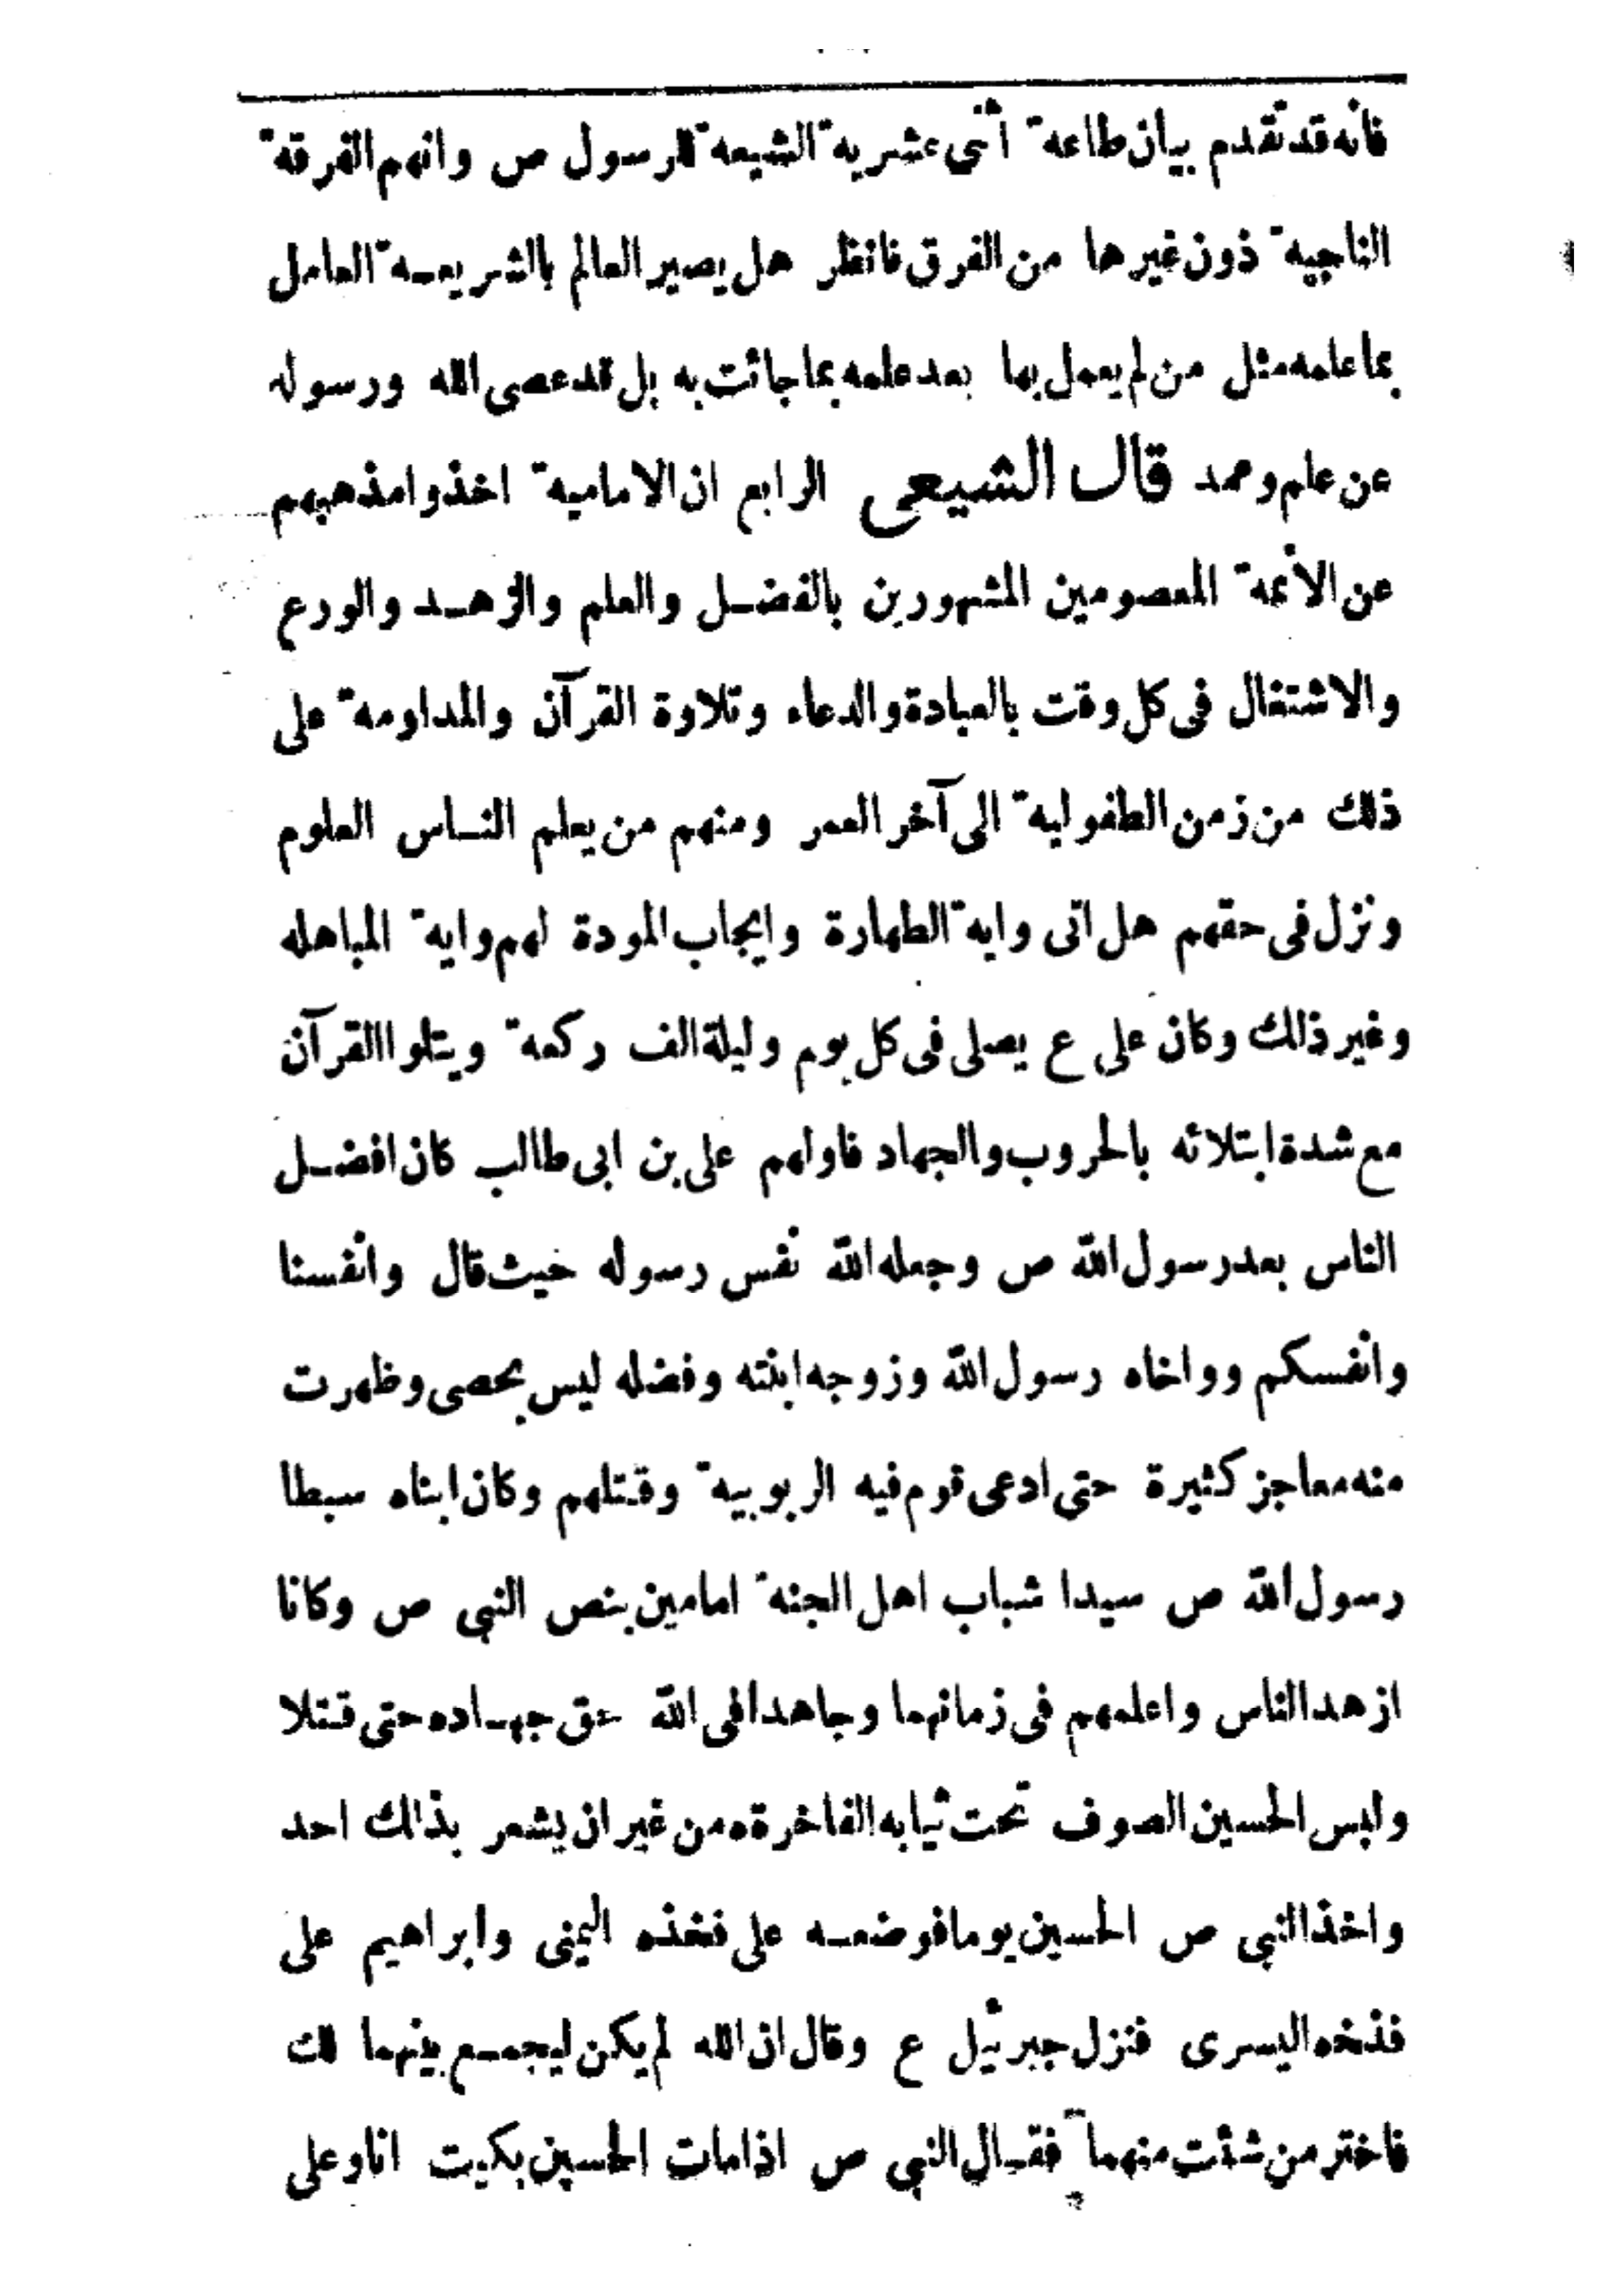 فانه قد تقدم بيان طاعة اثنى عشرية الشيعة للرسول ص وانهم الفرقة
الناجية ذون غيرها من الفرق فانظر هل يصير العالم بالشريعة العامل
بما علمه مثل من لم يعمل بها بعد علمه بما جائت به بل قد عصى الله ورسوله
عن علم وعمد قال الشيعى الرابع ان الامامية اخذوا مذهبهم
عن الأئمة المعصومين المشهورين بالفضل والعلم والزهد والورع
والاشتغال فى كل وقت بالعبادة والدعاء وتلاوة القرآن والمداومة على
ذلك من زمن الطفولية الى آخر العمر ومنهم من يعلم الناس العلوم
ونزل فى حقهم هل اتى واية الطهارة وايجاب المودة لهم واية المباهله
وغير ذلك وكان على ع يصلى فى كل يوم وليلة الف ركعة ويتلوا القرآن
مع شدة ابتلائه بالحروب والجهاد فاولهم على بن ابى طالب كان افضل
الناس بعد رسول الله ص وجعله الله نفس رسوله حيث قال وانفسنا
وانفسكم وواخاه رسول الله وزوجه ابنته وفضله ليس يحصى وظهرت
منه معاجز كثيرة حتى ادعى قوم فيه الربوبية وقتلهم وكان ابناه سبطا
رسول الله ص سيدا شباب اهل الجنة امامين بنص النبى ص وكانا
ازهد الناس واعلمهم فى زمانهما وجاهدا فى الله حق جهاده حتى قتلا
ولبس الحسين الصوف تحت ثيابه الفاخرة من غير ان يشعر بذلك احد
واخذ النبى ص الحسين يوما فوضعه على فخذه اليمنى وابراهيم على
فذخه اليسرى فنزل جبرئيل ع وقال ان الله لم يكن ليجمع بينهما لك
فاختر من شئت منهما فقال النبى ص اذا مات الحسين بكيت انا وعلى